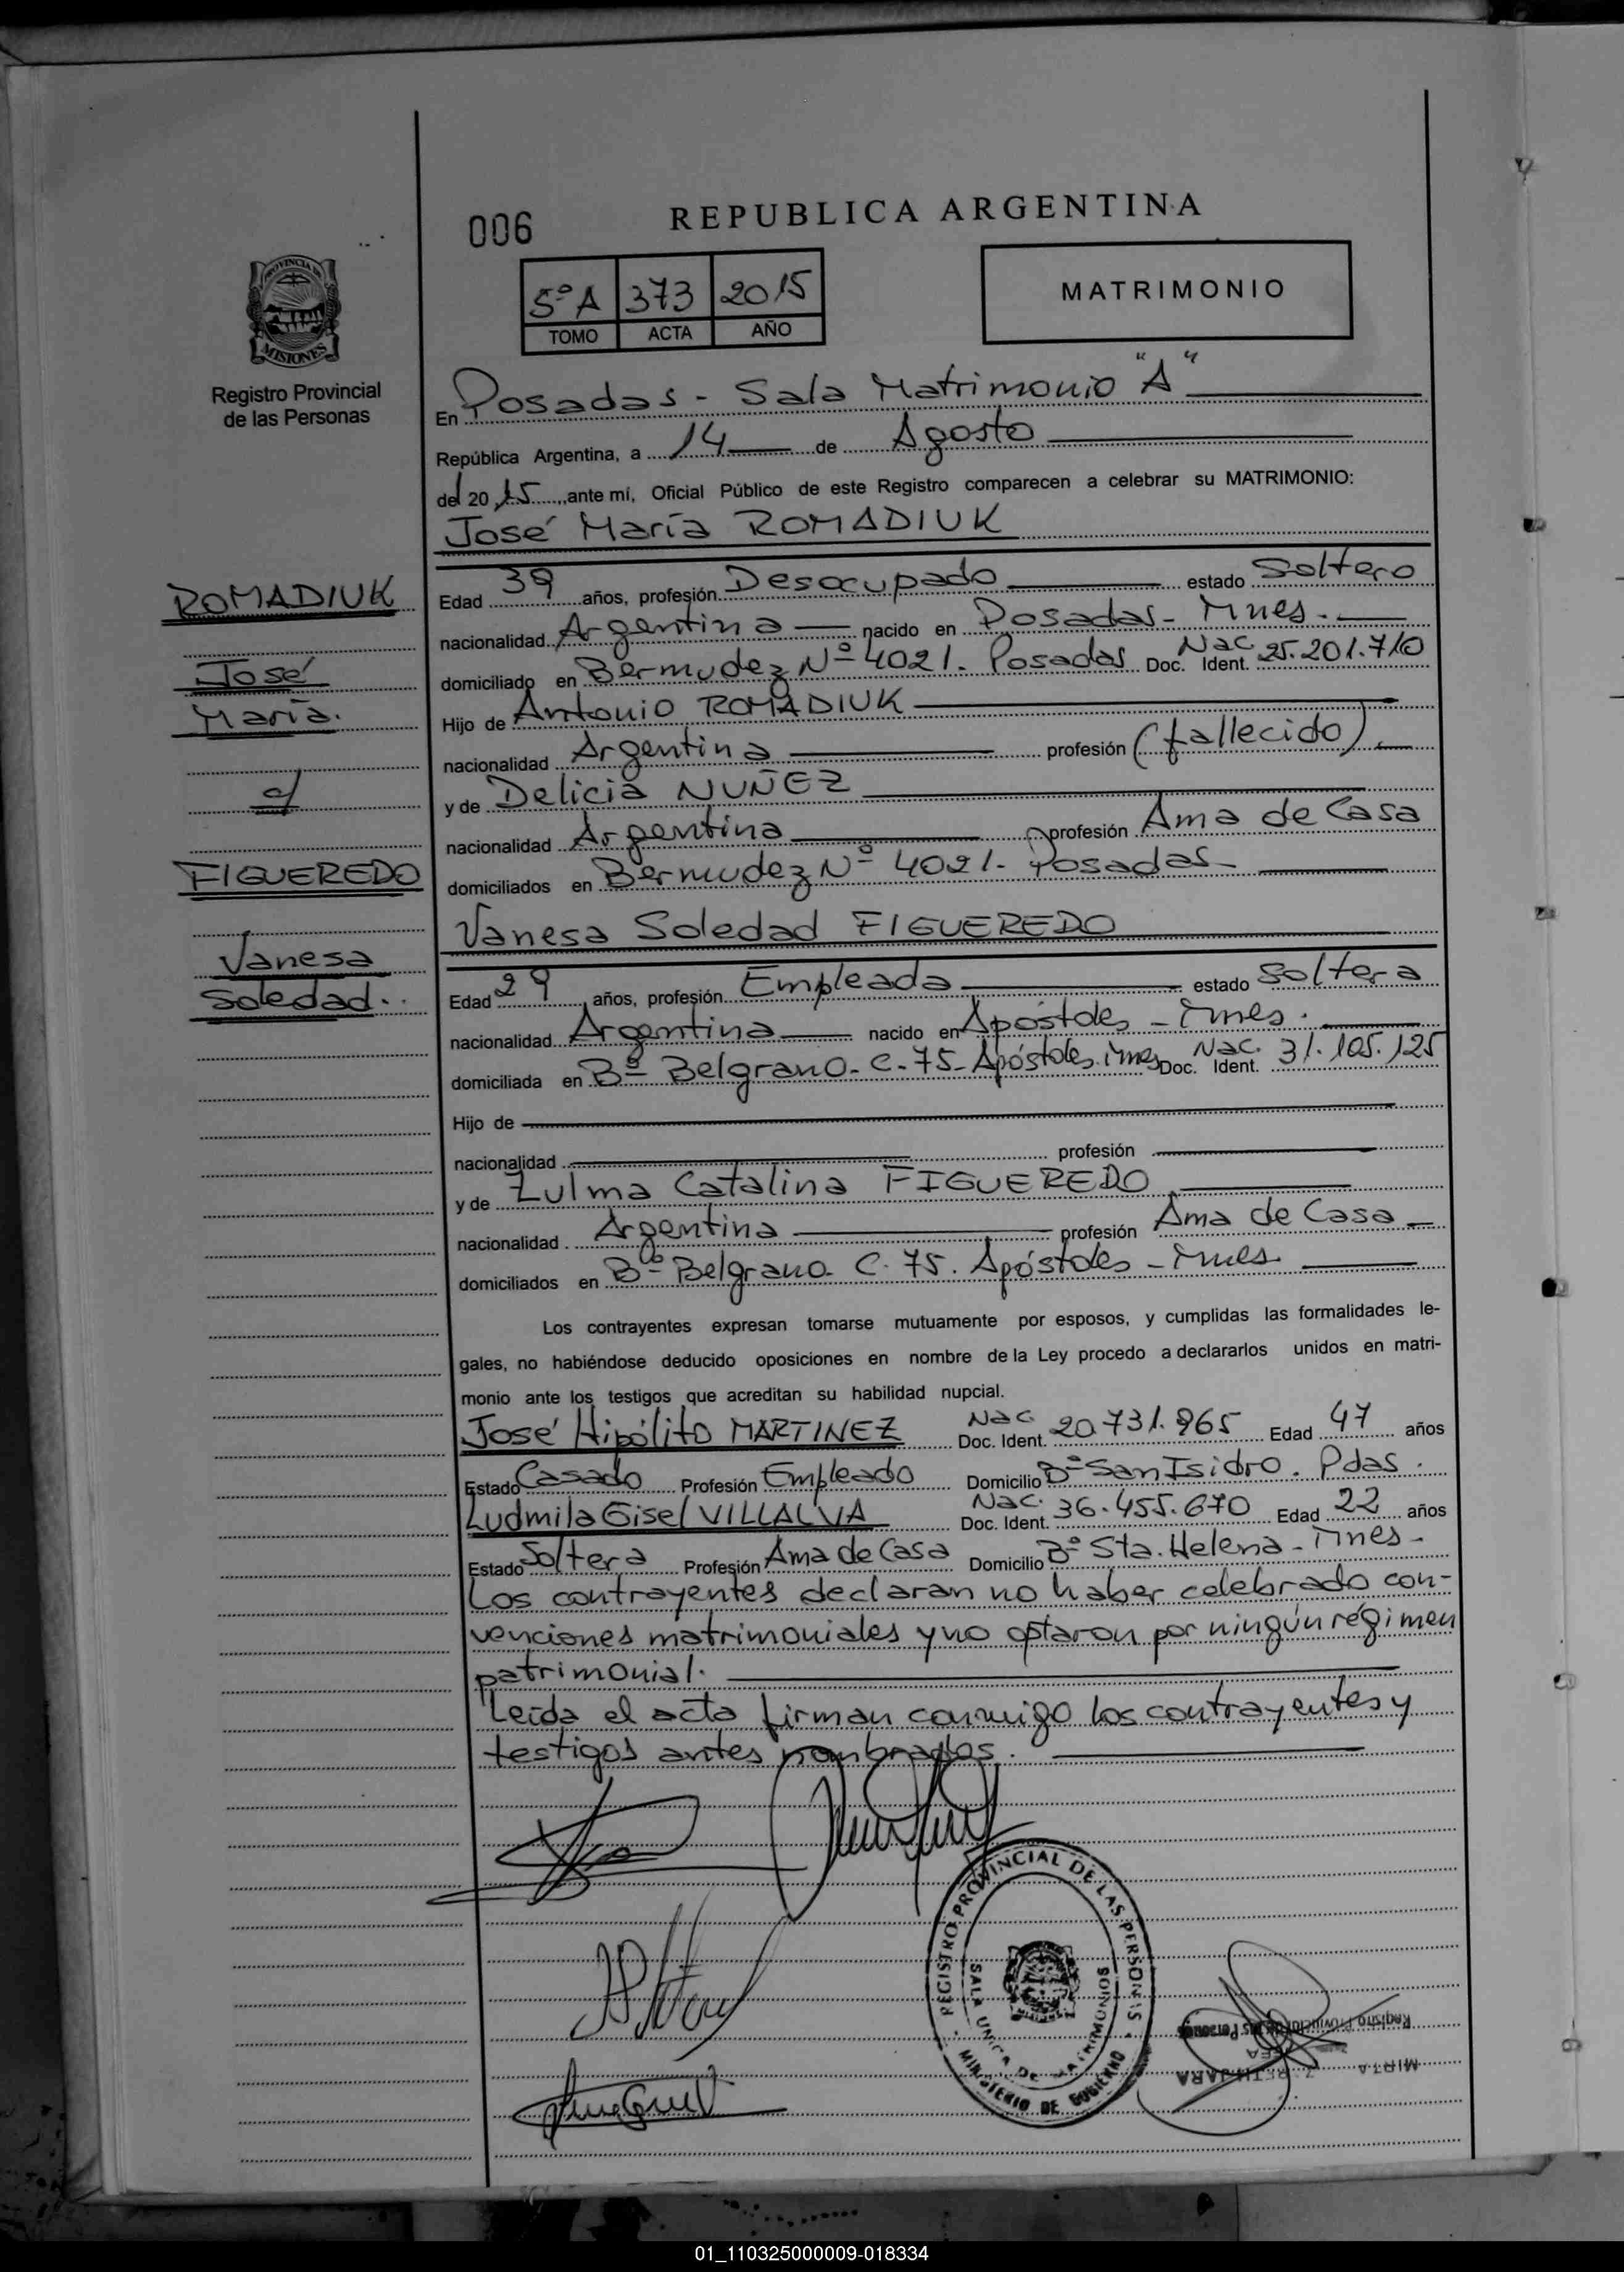 006
REPUBLICA ARGENTINA
PROVINCIA DE
MISIONES
Registro Provincial
de las Personas
5º A 373 2015
TOMO ACTA AÑO
MATRIMONIO
En Posadas - Sala Matrimonio "A"
República Argentina, a 14 de Agosto
del 20 15, ante mí, Oficial Público de este Registro comparecen a celebrar su MATRIMONIO:
José María ROMADIUK
ROMADIUK
José
María.
c/
FIGUEREDO
Vanesa
Soledad.
Edad 39 años, profesión Desocupado estado Soltero
nacionalidad Argentina nacido en Posadas - Mnes.
domiciliado en Bermudez Nº 4021. Posadas Doc. Nac. Ident. 25.201.710
Hijo de Antonio ROMADIUK
nacionalidad Argentina profesión (fallecido)
y de Delicia NUÑEZ
nacionalidad Argentina profesión Ama de Casa
domiciliados en Bermudez Nº 4021. Posadas
Vanesa Soledad FIGUEREDO
Edad 29 años, profesión Empleada estado Soltera
nacionalidad Argentina nacido en Apóstoles - Mnes.
domiciliada en Bº Belgrano - C. 75 - Apóstoles. Mnes Doc. Nac. Ident. 31.105.125
Hijo de
nacionalidad profesión
y de Zulma Catalina FIGUEREDO
nacionalidad Argentina profesión Ama de Casa
domiciliados en Bº Belgrano. C. 75. Apóstoles - Mnes
Los contrayentes expresan tomarse mutuamente por esposos, y cumplidas las formalidades le-
gales, no habiéndose deducido oposiciones en nombre de la Ley procedo a declararlos unidos en matri-
monio ante los testigos que acreditan su habilidad nupcial.
José Hipólito MARTINEZ Nac. Doc. Ident. 20.731.965 Edad 47 años
Estado Casado Profesión Empleado Domicilio Bº San Isidro. Pdas.
Ludmila Gisel VILLALVA Nac. Doc. Ident. 36.455.670 Edad 22 años
Estado Soltera Profesión Ama de Casa Domicilio Bº Sta. Helena - Mnes -
Los contrayentes declaran no haber celebrado con-
venciones matrimoniales y no optaron por ningún régimen
patrimonial.
Leída el acta firman conmigo los contrayentes y
testigos antes nombrados.
REGISTRO PROVINCIAL DE LAS PERSONAS
SALA UNICA DE MATRIMONIOS
MINISTERIO DE GOBIERNO
Registro Provincial de las Personas
MIRTA JARA
01_110325000009-018334